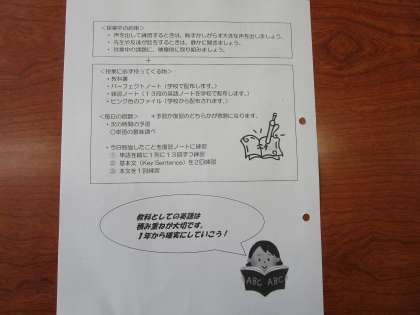 ＜授業中の約束＞
・声を出して練習するときは、恥ずかしがらず大きな声を出しましょう。
・先生や友達が話をするときは、静かに聞きましょう。
・授業中の課題に、積極的に取り組みましょう。
＋
＜授業に必ず持ってくる物＞
・教科書
・パーフェクトノート（学校で配布します。）
・練習ノート（13段の英語ノートを学校で配布します。）
・ピンク色のファイル（学校から配布されます。）
＜毎日の宿題＞
＊予習か復習のどちらかが宿題になります。
・次の時間の予習
○単語の意味調べ
・今日勉強したことを復習ノートに練習
① 単語を縦に1列に13回ずつ練習
② 基本文（Key Sentence）を2回練習
③ 本文を1回練習
教科としての英語は
積み重ねが大切です。
1年から確実にしていこう！
ABC ABC